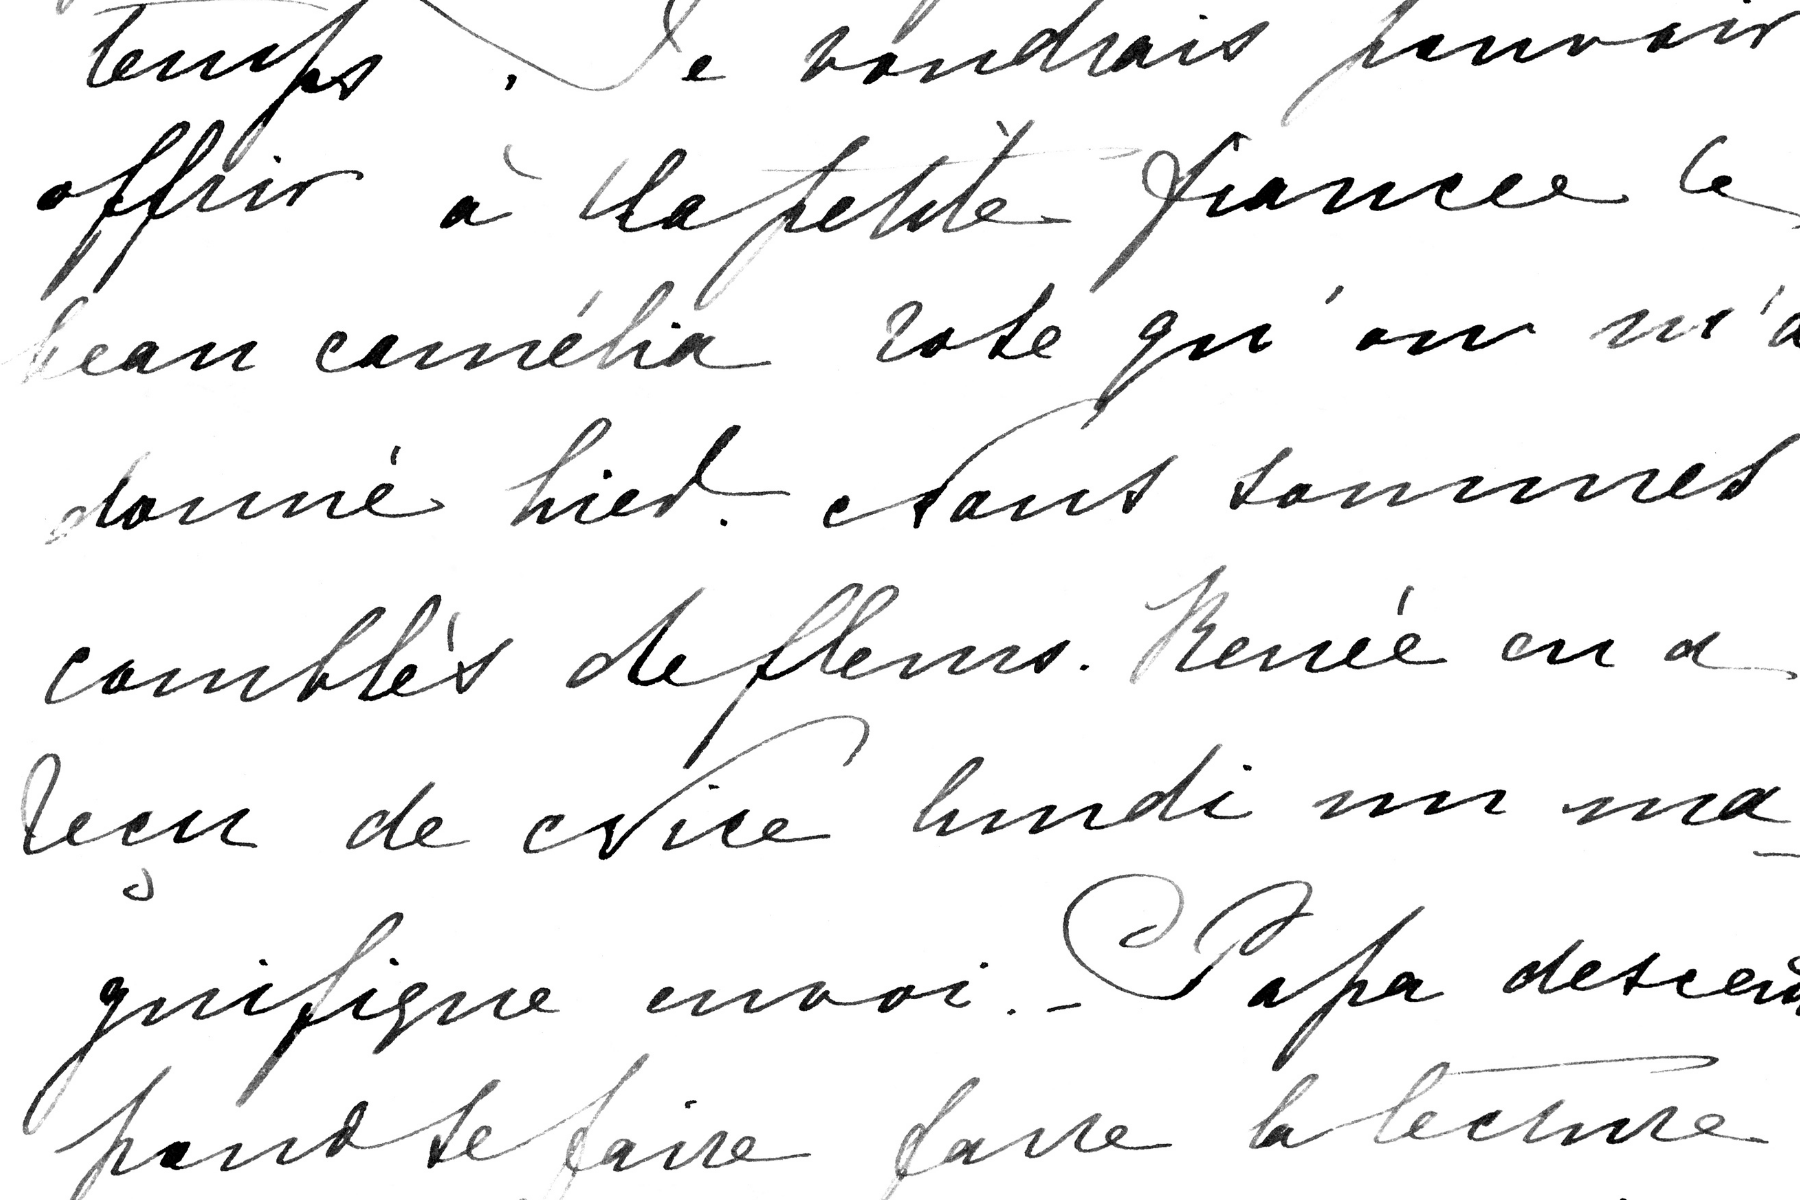 temps. Je voudrais pouvoir
offrir à la petite fiancée le
beau camélia rose qu'on m'a
donné hier. Nous sommes
comblés de fleurs. Renée en a
reçu de Nice lundi un ma-
gnifique envoi. - Papa descend
pour se faire faire la lecture